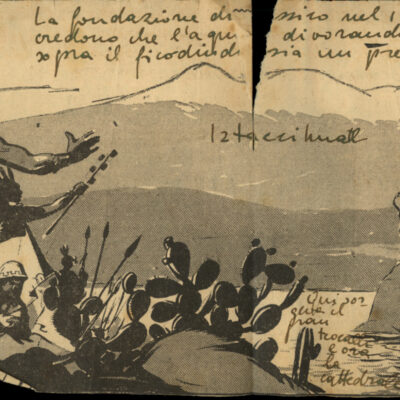 La fondazione di ssico nel 1
credono che l'aqu divorand
sopra il ficodind sia un pre
Iztaccihuatl
Qui sor
geva il
gran
teocalli
e ora
la
cattedral